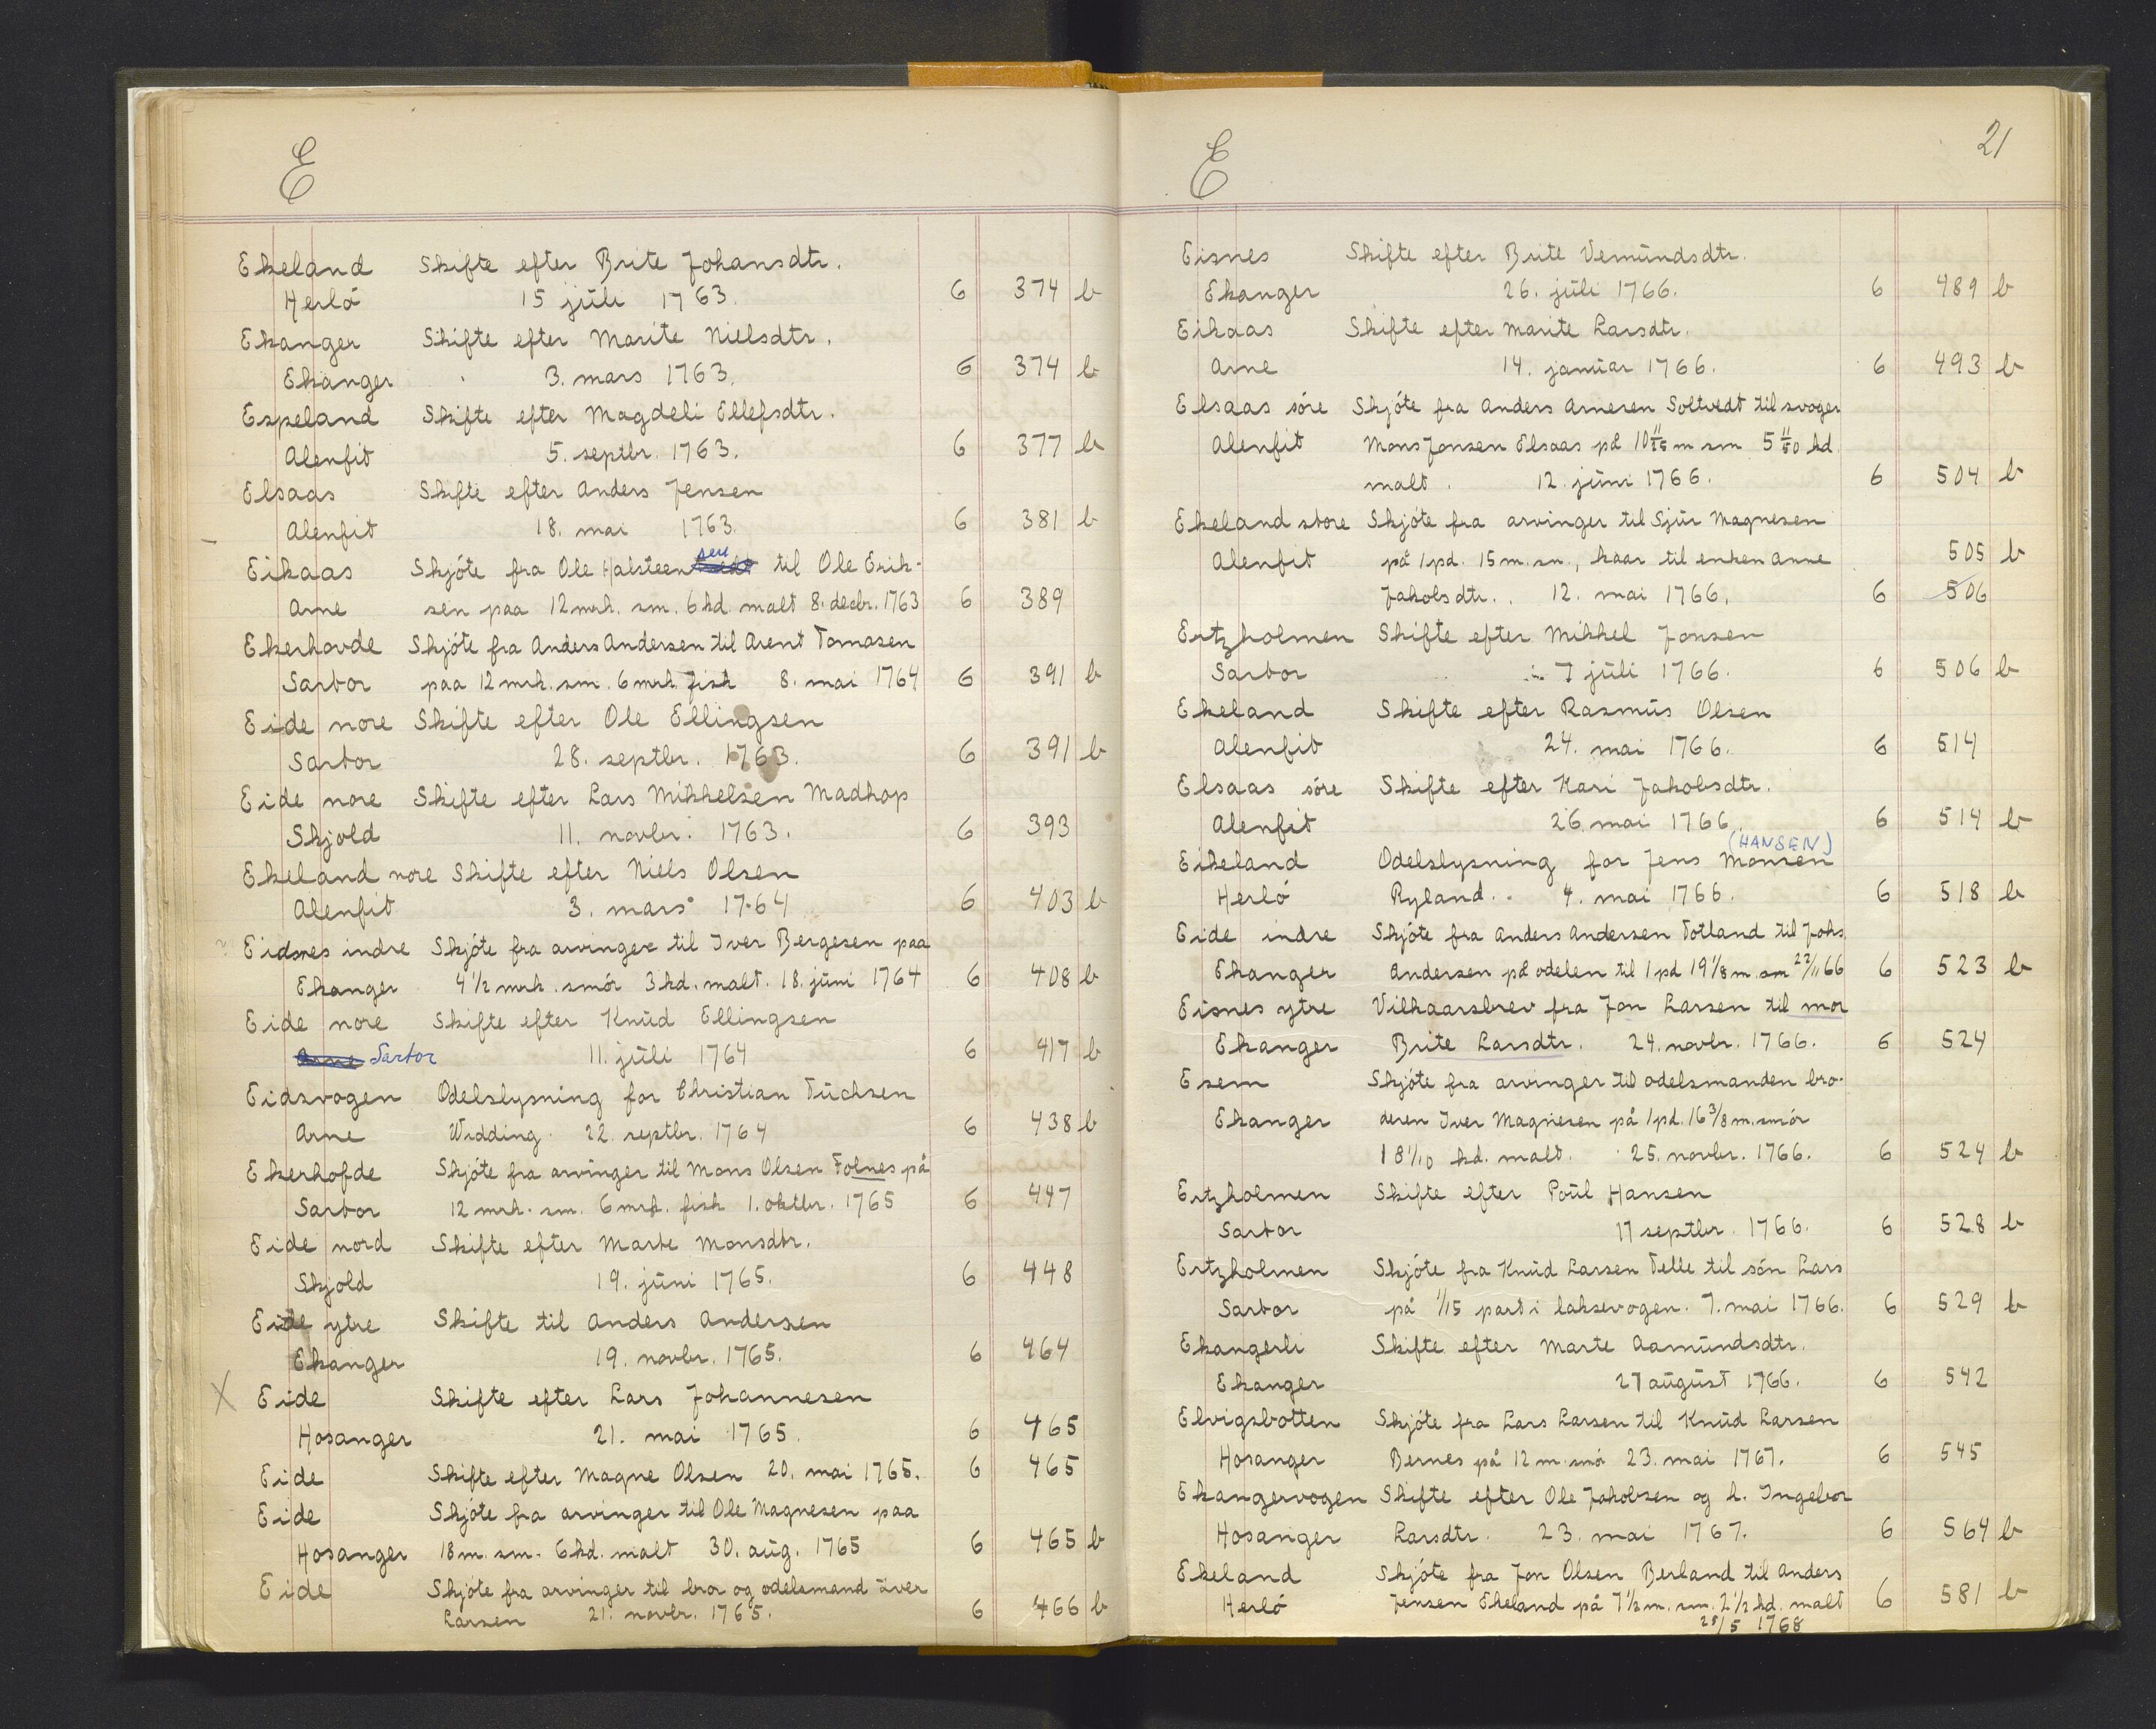 E
Ekeland Skifte efter Brite Johansdtr.
Herlö 15 jüli 1763. 6 374 b
Ekanger Skifte efter Marite Nielsdtr.
Ekanger 3. mars 1763. 6 374 b
Espeland Skifte efter Magdeli Ellefsdtr.
Alenfit 5. septbr. 1763. 6 377 b
Elsaas Skifte efter Anders Jensen
Alenfit 18. mai 1763. 6 381 b
Eikaas Skjöte fra Ole Halsteensen til Ole Erik-
Arne sen paa 12 mrk. sm. 6 kd. malt 8. decbr. 1763 6 389
Ekerhovde Skjöte fra Anders Andersen til Arent Tomasen
Sartor paa 12 mrk. sm. 6 mrk. fisk 8. mai 1764 6 391 b
Eide nore Skifte efter Ole Ellingsen
Sartor 28. septbr. 1763. 6 391 b
Eide nore Skifte efter Lars Mikkelsen Madhop
Skjold 11. novbr. 1763. 6 393
Ekeland nore Skifte efter Niels Olsen
Alenfit 3. mars 1764 6 403 b
Eidsnes indre Skjöte fra arvinger til Iver Bergesen paa
Ekanger 4 1/2 mrk. smör 3 kd. malt. 18. jüni 1764 6 408 b
Eide nore Skifte efter Knüd Ellingsen
Arne Sartor 11. jüli 1764 6 417 b
Eidsvogen Odelslysning for Christian Tüchsen
Arne Widding. 22. septbr. 1764 6 438 b
Ekerhofde Skjöte fra arvinger til Mons Olsen Folnes på
Sartor 12 mrk. sm. 6 mrk. fisk 1. oktbr. 1765 6 447
Eide nord Skifte efter Marte Monsdtr.
Skjold 19. jüni 1765. 6 448
Eide ytre Skifte til Anders Andersen
Ekanger 19. novbr. 1765. 6 464
X Eide Skifte efter Lars Johannesen
Hosanger 21. mai 1765. 6 465
Eide Skifte efter Magne Olsen 20. mai 1765. 6 465
Eide Skjöte fra arvinger til Ole Magnesen paa
Hosanger 18 m. sm. 6 kd. malt 30. aüg. 1765 6 465 b
Eide Skjöte fra arvinger til bror og odelsmand iver
Larsen 21. novbr. 1765. 6 466 b
E 21
Eisnes Skifte efter Brite Vemündsdtr.
Ekanger 26. jüli 1766. 6 489 b
Eikaas Skifte efter Marite Larsdtr.
Arne 14. janüar 1766. 6 493 b
Elsaas söre Skjöte fra Anders Arnesen Soltvedt til svoger
Alenfit Mons Jonsen Elsaas på 10 m sm 5 kd.
malt. 12. jüni 1766. 6 504 b
Ekeland store Skjöte fra arvinger til Sjür Magnesen
Alenfit på 1 pd. 15 m. sm., kaar til enken Anne 505 b
Jakobsdtr. 12. mai 1766. 6 506
Ertzholmen Skifte efter Mikkel Jonsen
Sartor 7 jüli 1766. 6 506 b
Ekeland Skifte efter Rasmüs Olsen
Alenfit 24. mai 1766. 6 514
Elsaas söre Skifte efter Kari Jakobsdtr.
Alenfit 26. mai 1766. 6 514 b
(HANSEN)
Eikeland Odelslysning for Jens Monsen
Herlö Ryland. 4. mai 1766. 6 518 b
Eide indre Skjöte fra Anders Andersen Totland til Johs.
Ekanger Andersen på odelen til 1 pd 19 1/8 m. sm 22/11 66 6 523 b
Eisnes ytre Vilkaarsbrev fra Jon Larsen til mor
Ekanger Brite Larsdtr. 24. novbr. 1766. 6 524
Esem Skjöte fra arvinger til odelsmanden bro-
Ekanger deren Iver Magnesen på 1 pd. 16 3/8 m. smör
1 8 1/10 kd. malt. 25. novbr. 1766. 6 524 b
Ertzholmen Skifte efter Poül Hansen
Sartor 17 septbr. 1766. 6 528 b
Ertzholmen Skjöte fra Knüd Larsen Telle til sön Lars
Sartor på 1/15 part i laksevogen. 7. mai 1766. 6 529 b
Ekangerli Skifte efter Marte Aamündsdtr.
Ekanger 27 aügüst 1766. 6 542
Elvigsbotten Skjöte fra Lars Larsen til Knüd Larsen
Hosanger Bernes på 12 m. smö 23. mai 1767. 6 545
Ekangervogen Skifte efter Ole Jakobsen og h. Ingebor
Hosanger Larsdtr. 23. mai 1767. 6 564 b
Ekeland Skjöte fra Jon Olsen Berland til Anders
Herlö Jensen Ekeland på 7 1/2 m. sm. 2 1/2 kd. malt 6 581 b
28/5 1768